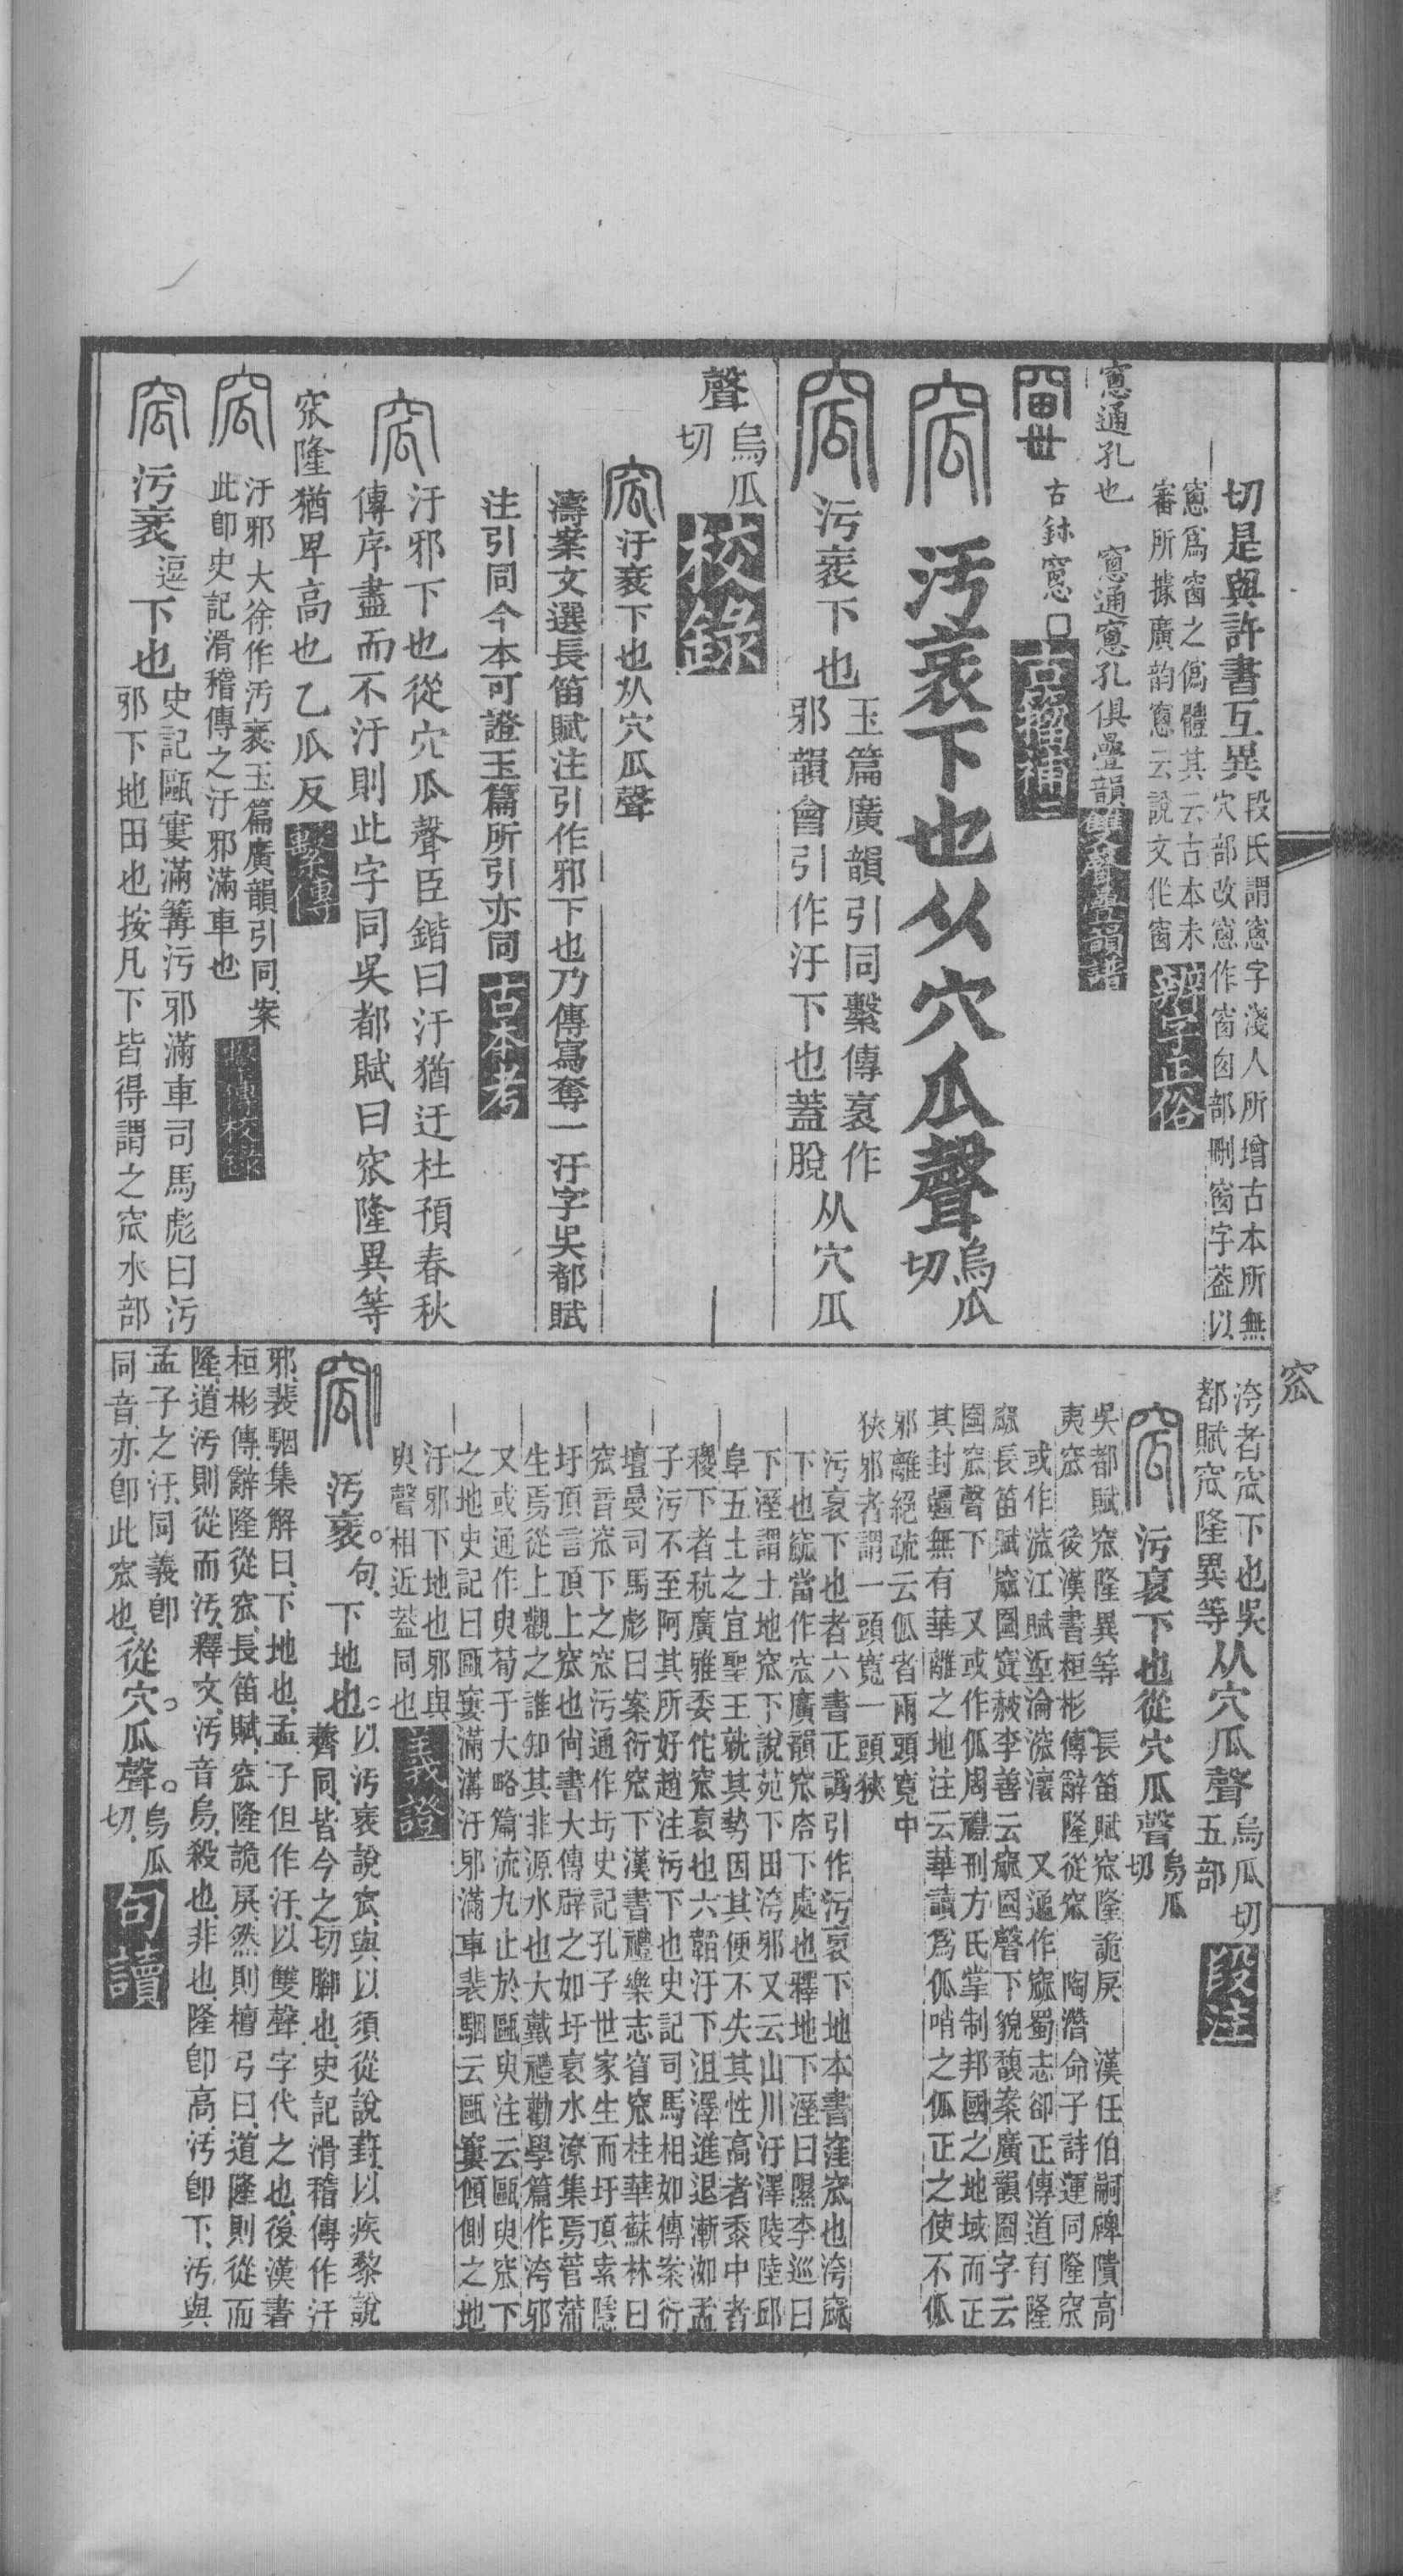 切是與許書互異
段氏謂窻字淺人所增古本所無
穴部改窻作窗囪部刪窗字葢以
窻爲窗之僞體其云古本未
審所據廣韵窻云說文作窗
辨字正俗
窻通孔也 窻通窻孔俱疊韻
雙聲疊韻譜
古鉥窻□
古籀補二
污衺下也从穴瓜聲
烏瓜
切
污衺下也
玉篇廣韻引同繫傳衺作
邪韻會引作汙下也蓋脫
从穴瓜
聲
烏瓜
切
校錄
汙衺下也从穴瓜聲
濤案文選長笛賦注引作邪下也乃傳寫奪一汙字吳都賦
注引同今本可證玉篇所引亦同
古本考
汙邪下也從穴瓜聲臣鍇曰汙猶迂杜預春秋
傳序盡而不汙則此字同吳都賦曰窊隆異等
窊隆猶卑高也乙瓜反
繫傳
汙邪大徐作汚衺玉篇廣韻引同案
此卽史記滑稽傳之汙邪滿車也
繫傳校錄
污衺
逗
下也
史記甌寠滿篝污邪滿車司馬彪曰污
邪下地田也按凡下皆得謂之窊水部
洿者窊下也吳
都賦窊隆異等
从穴瓜聲
烏瓜切
五部
段注
污衺下也從穴瓜聲
烏瓜
切
吳都賦窊隆異等 長笛賦窊隆詭戾 漢任伯嗣碑隤高
夷窊 後漢書桓彬傳辭隆從窊 陶潛命子詩運同隆窊
或作窳江賦滛淪窳瀼 又通作窳蜀志卻正傳道有隆
窳長笛賦窳圔窴赦李善云窳圔聲下貌馥案廣韻圔字云
圔窊聲下 又或作㼌周禮刑方氏掌制邦國之地域而正
其封疆無有華離之地注云華讀爲㼌哨之㼌正之使不㼌
邪離絕疏云㼌者兩頭寬中
狹邪者謂一頭寬一頭狹
污衺下也者六書正譌引作污衺下地本書窪窊也洿窳
下也窳當作窊廣韻窊㕎下處也釋地下溼曰隰李巡曰
下溼謂土地窊下說苑下田洿邪又云山川汙澤陵陸邱
阜五土之宜聖王就其勢因其便不失其性高者黍中者
稷下者秔廣雅委佗窊衺也六韜汙下沮澤進退漸洳孟
子污不至阿其所好趙注污下也史記司馬相如傳案衍
壇曼司馬彪曰案衍窊下漢書禮樂志窅窊桂華蘇林曰
窊音窊下之窊污通作圬史記孔子世家生而圩頂索隱
圩頂言頂上窊也尙書大傳辟之如圩衺水潦集焉菅蒲
生焉從上觀之誰知其非源水也大戴禮勸學篇作洿邪
又或通作臾荀子大略篇流九止於甌臾注云甌臾窊下
之地史記曰甌寠滿溝汙邪滿車裴駰云甌寠傾側之地
汙邪下地也邪與
臾聲相近葢同也
義證
污衺。
句、
下地也。
以污衺說窊、與以須從說葑、以疾黎說
薺同、皆今之切腳也、史記滑稽傳作汙
邪、裴駰集解曰、下地也、孟子但作汙、以雙聲字代之也、後漢書
桓彬傳、辭隆從窊、長笛賦、窊隆詭戾、然則檀弓曰、道隆則從而
隆、道污則從而污、釋文、污音烏、殺也、非也、隆卽高、污卽下、污與
孟子之汙、同義、卽
同音、亦卽此窊也、
從穴。瓜聲。
烏瓜
切、
句讀
窊